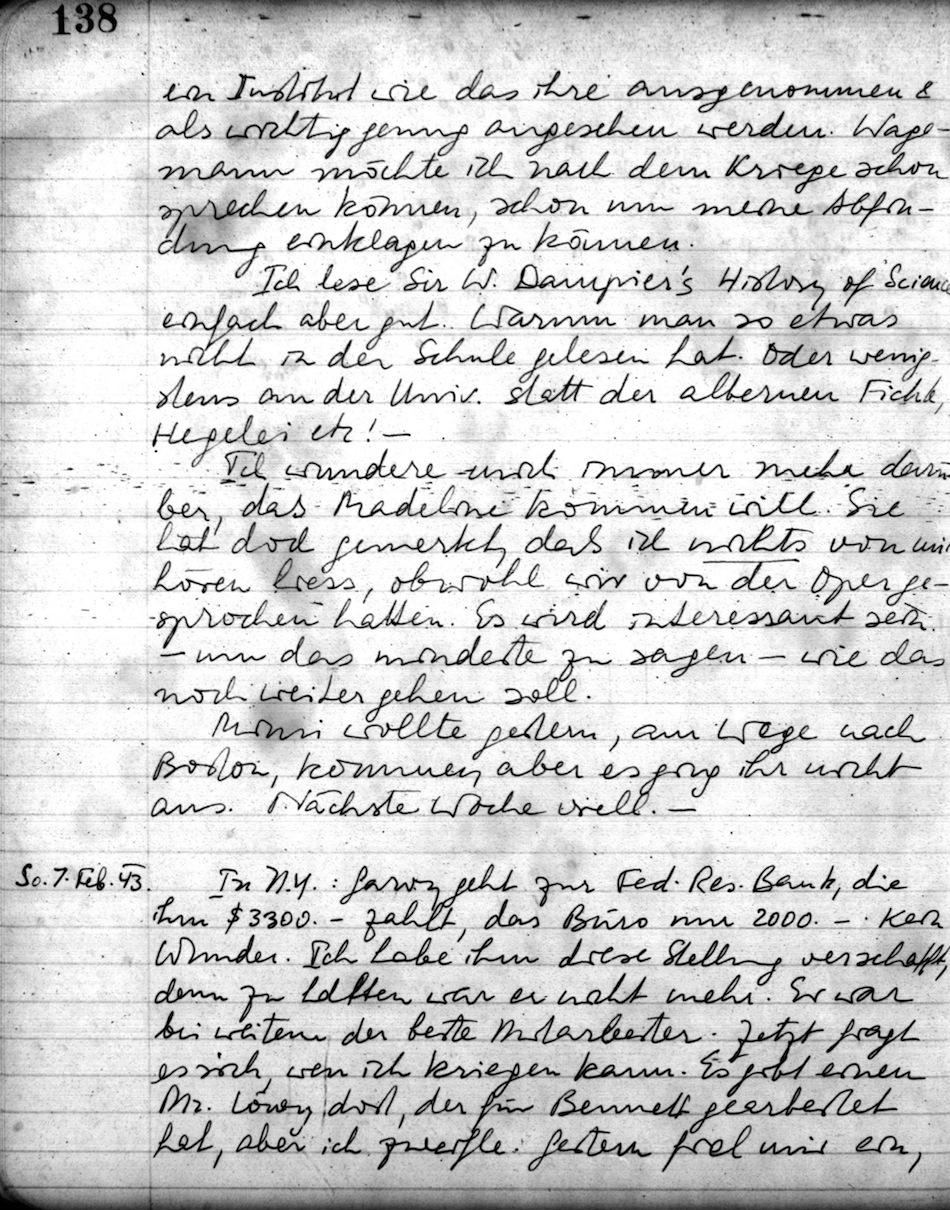 138
ein Institut wie das ihre ausgenommen &
als wichtig genug angesehen werden. Wage-
mann möchte ich nach dem Kriege schon
sprechen können, schon um meine Abfin-
dung einklagen zu können.
Ich lese Sir W. Dampier's History of Science
einfach aber gut. Warum man so etwas
nicht in der Schule gelesen hat. Oder wenig-
stens an der Univ. statt der albernen Fichte,
Hegelei etc! —
Ich wundere mich immer mehr darü
ber, das Madeleine kommen will. Sie
hat doch gemerkt, dass ich nichts von mir
hören liess, obwohl wir von der Oper ge-
sprochen hatten. Es wird interessant sein
— um das mindeste zu sagen — wie das
noch weiter gehen soll.
Mimi wollte gestern, am Wege nach
Boston, kommen, aber es ging ihr nicht
aus. Nächste Woche viell. —
So. 7. Feb. 43. In N.Y.: Garvy geht zur Fed. Res. Bank, die
ihm $3300.- zahlt, das Büro nur 2000.-. Kein
Wunder. Ich habe ihm diese Stellung verschafft,
denn zu halten war er nicht mehr. Er war
bei weitem der beste Mitarbeiter. Jetzt fragt
es sich, wen ich kriegen kann. Es gibt einen
Mr. Löwy dort, der für Bennett gearbeitet
hat, aber ich zweifle. Gestern fiel mir ein,